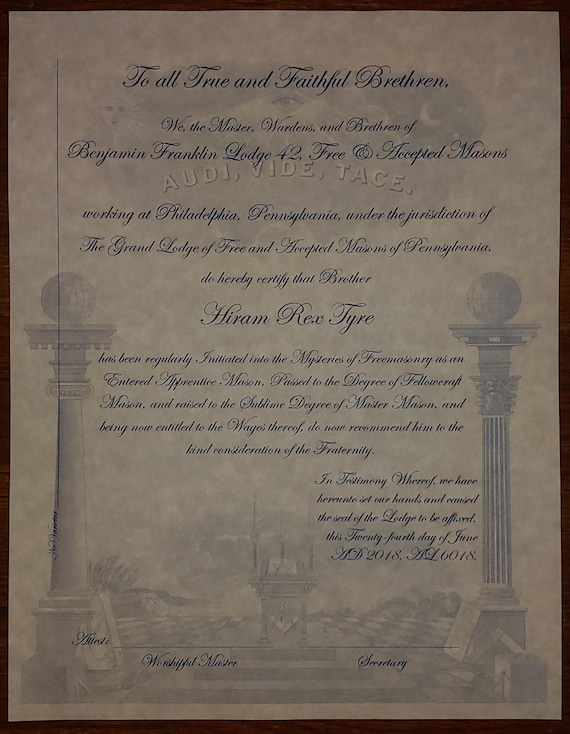 To all True and Faithful Brethren,
We, the Master, Wardens, and Brethren of
Benjamin Franklin Lodge 42, Free & Accepted Masons
AUDI, VIDE, TACE,
working at Philadelphia, Pennsylvania, under the jurisdiction of
The Grand Lodge of Free and Accepted Masons of Pennsylvania,
do hereby certify that Brother
Hiram Rex Tyre
has been regularly Initiated into the Mysteries of Freemasonry as an
Entered Apprentice Mason, Passed to the Degree of Fellowcraft
Mason, and raised to the Sublime Degree of Master Mason, and
being now entitled to the Wages thereof, do now recommend him to the
kind consideration of the Fraternity.
In Testimony Whereof, we have
hereunto set our hands and caused
the seal of the Lodge to be affixed,
this Twenty-fourth day of June
AD 2018, AL 6018.
Ne Varietur
Attest:
Worshipful Master
Secretary